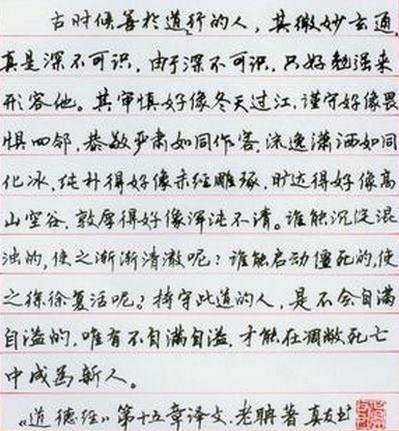 古时候善于道行的人，其微妙玄通，
真是深不可识，由于深不可识，只好勉强来
形容他。其审慎好像冬天过江，谨守好像畏
惧四邻，恭敬严肃如同作客，流逸潇洒如同
化冰，纯朴得好像未经雕琢，旷达得好像高
山空谷，敦厚得好像浑沌不清。谁能沉淀混
浊的，使之渐渐清澈呢？谁能启动僵死的，使
之徐徐复活呢？持守此道的人，是不会自满
自溢的，唯有不自满自溢，才能在凋敝死亡
中成为新人。
《道德经》第十五章译文．老聃著